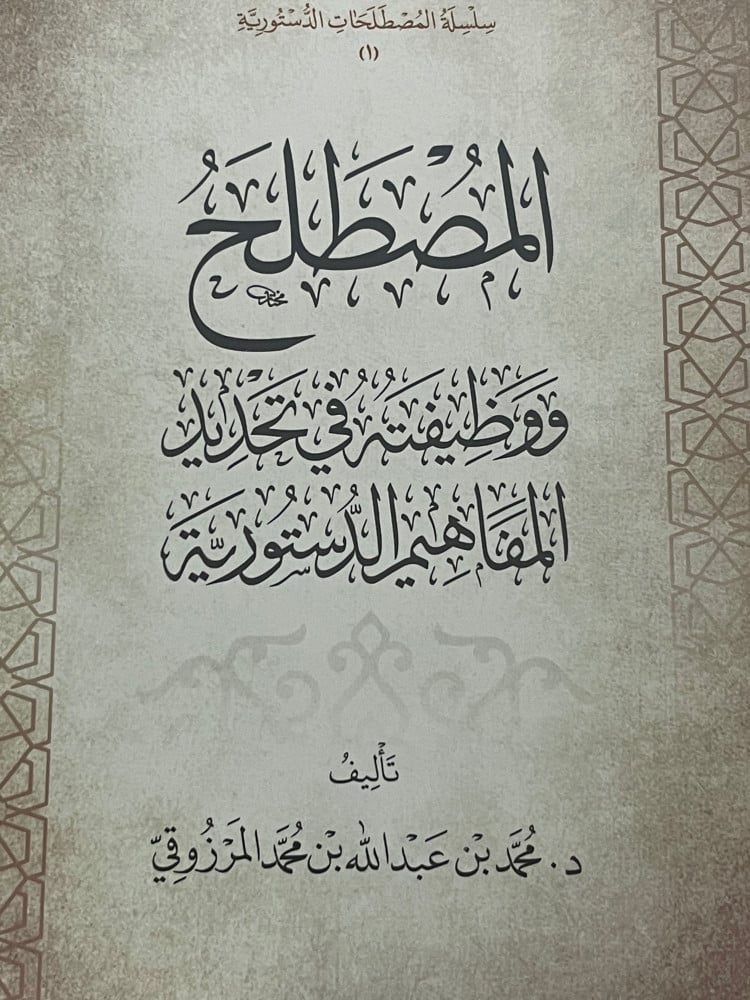 سِلْسِلَةُ المُصْطَلَحَاتِ الدُّسْتُورِيَّةِ
(١)
المُصْطَلَحُ
وَوَظِيفَتُهُ فِي تَحْدِيدِ
المَفَاهِيمِ الدُّسْتُورِيَّةِ
تَأْلِيفُ
د. مُحَمَّد بْن عَبْدالله بْن مُحَمَّد المَرْزُوقِيّ